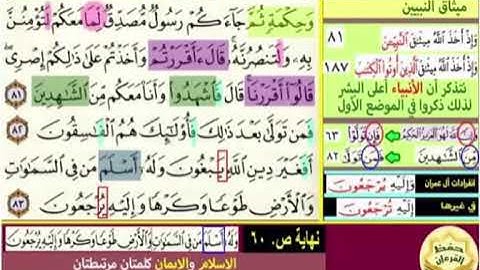 وَحِكْمَةٍ ثُمَّ جَآءَكُمْ رَسُولٌ مُّصَدِّقٌ لِّمَا مَعَكُمْ لَتُؤْمِنُنَّ
بِهِۦ وَلَتَنصُرُنَّهُۥ قَالَ ءَأَقْرَرْتُمْ وَأَخَذْتُمْ عَلَىٰ ذَٰلِكُمْ إِصْرِى
قَالُوٓا۟ أَقْرَرْنَا قَالَ فَٱشْهَدُوا۟ وَأَنَا۠ مَعَكُم مِّنَ ٱلشَّٰهِدِينَ ٨١
فَمَن تَوَلَّىٰ بَعْدَ ذَٰلِكَ فَأُو۟لَٰٓئِكَ هُمُ ٱلْفَٰسِقُونَ ٨٢
أَفَغَيْرَ دِينِ ٱللَّهِ يَبْغُونَ وَلَهُۥٓ أَسْلَمَ مَن فِى ٱلسَّمَٰوَٰتِ
وَٱلْأَرْضِ طَوْعًا وَكَرْهًا وَإِلَيْهِ يُرْجَعُونَ ٨٣
ميثاق النبيين
٨١ وَإِذْ أَخَذَ ٱللَّهُ مِيثَٰقَ ٱلنَّبِيِّـۧنَ
١٨٧ وَإِذْ أَخَذَ ٱللَّهُ مِيثَٰقَ ٱلَّذِينَ أُوتُوا۟ ٱلْكِتَٰبَ
نتذكر أن الأنبياء أعلى البشر
لذلك ذكروا في الموضع الأول
فَإِن تَوَلَّوْا۟ ٦٣
مِّنَ ٱلشَّٰهِدِينَ فَمَن تَوَلَّىٰ ٨٢
انفرادات آل عمران
وَإِلَيْهِ يُرْجَعُونَ
في غيرها
وَإِلَيْهِ تُرْجَعُونَ
نهاية ص. ٦٠
وَلَهُۥٓ أَسْلَمَ مَن فِى ٱلسَّمَٰوَٰتِ وَٱلْأَرْضِ طَوْعًا وَكَرْهًا وَإِلَيْهِ يُرْجَعُونَ
الاسلام والايمان كلمتان مرتبطتان
حفظ
القرءان